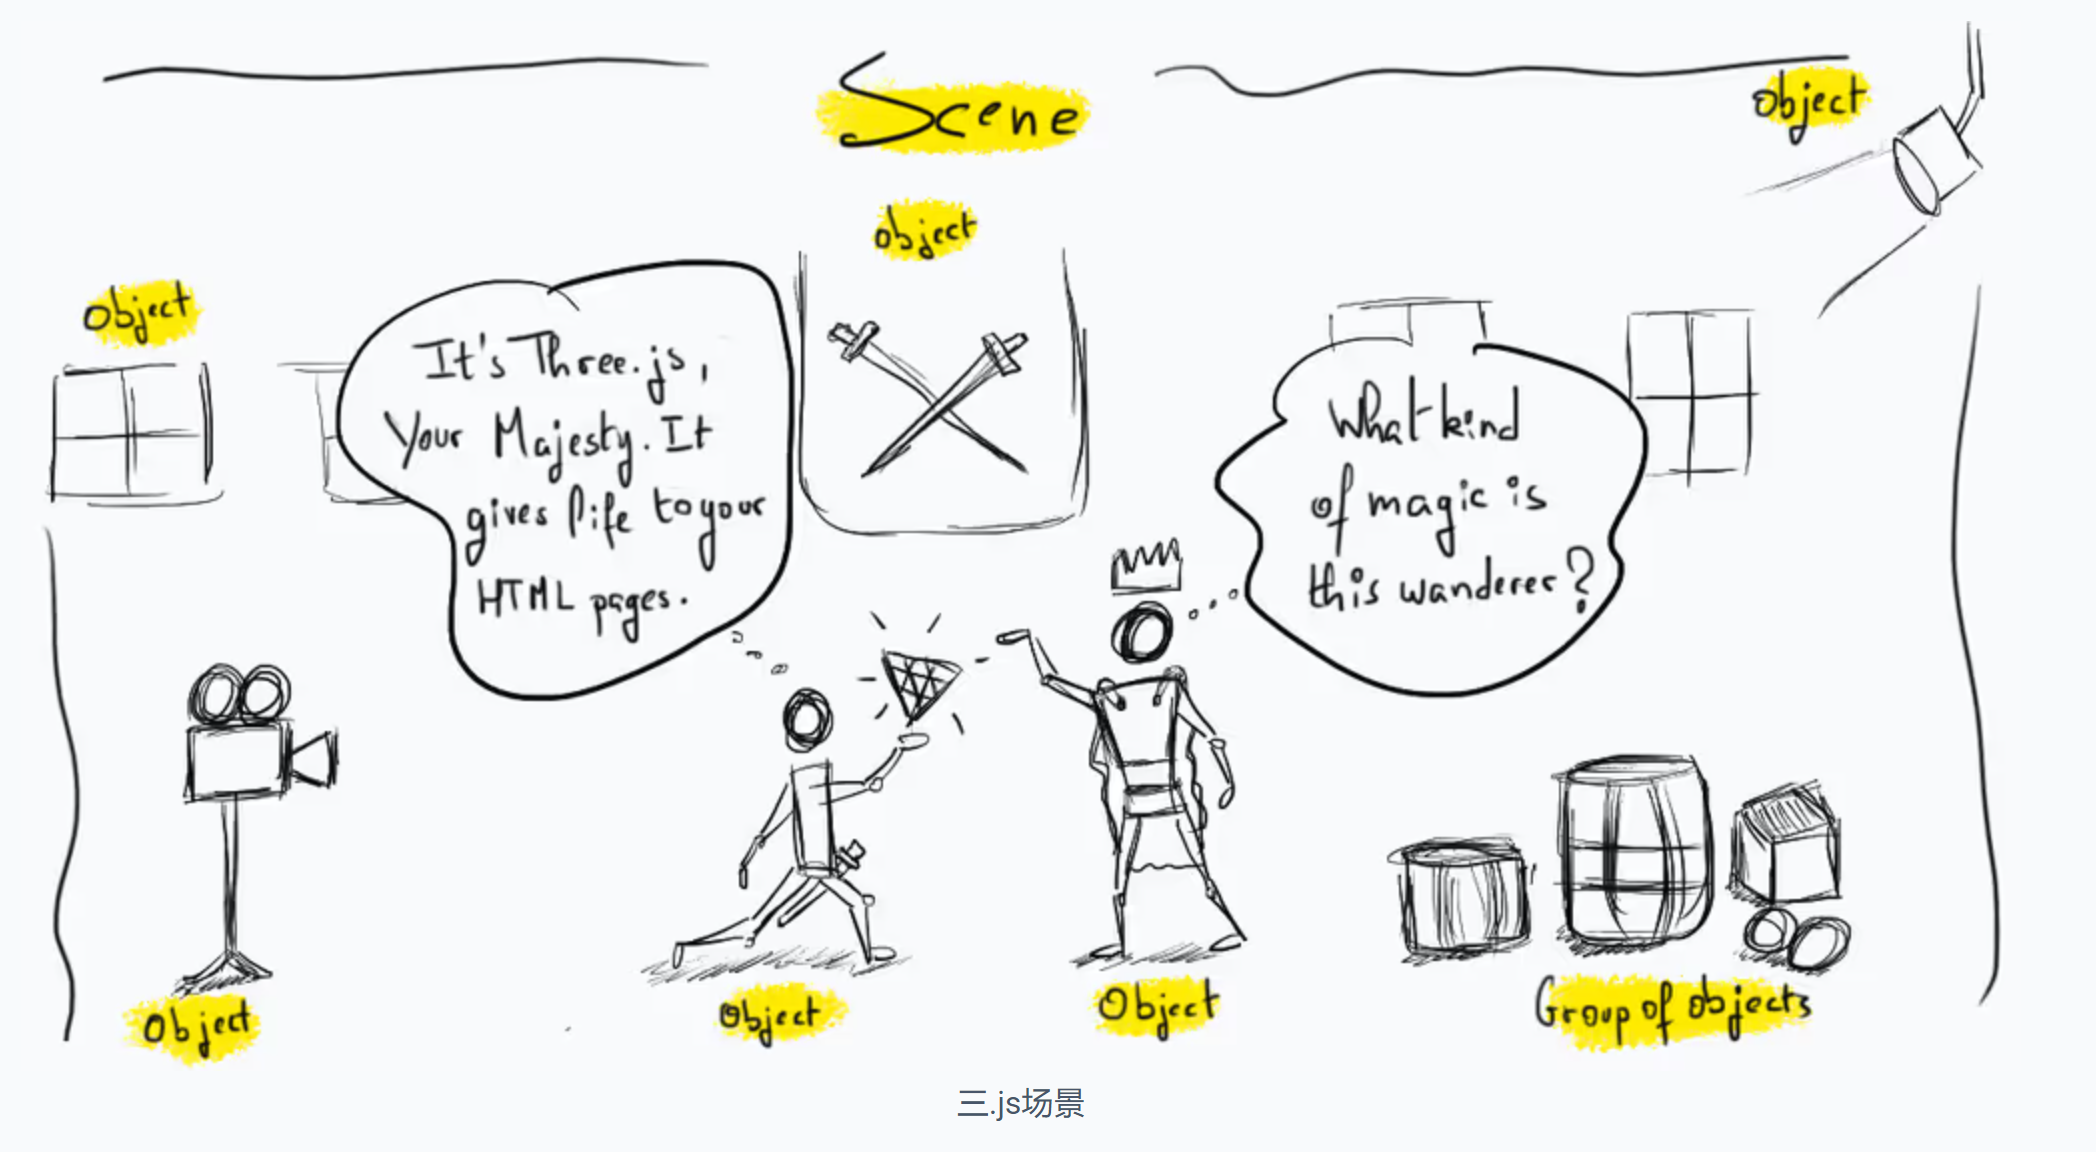 Scene
Object
Object
Object
It's Three.js,
Your Majesty. It
gives life to your
HTML pages.
What kind
of magic is
this wanderer?
Object
Object
Object
Group of objects
三.js场景